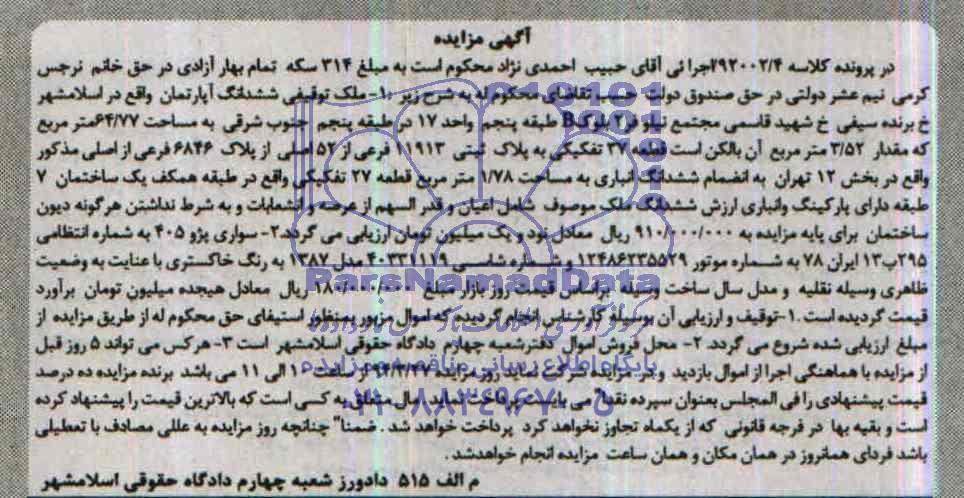 آگهی مزایده
در پرونده کلاسه ۹۲۰۰۲/۴اجرا ئی آقای حبیب احمدی نژاد محکوم است به مبلغ ۳۱۴ سکه تمام بهار آزادی در حق خانم نرجس
کرمی نیم عشر دولتی در حق صندوق دولت حسب تقاضای محکوم له به شرح زیر ۱- ملک توقیفی ششدانگ آپارتمان واقع در اسلامشهر
خ برنده سیفی خ شهید قاسمی مجتمع نیلوفر۲ بلوکB طبقه پنجم واحد ۱۷ در طبقه پنجم جنوب شرقی به مساحت ۶۴/۷۷متر مربع
که مقدار ۳/۵۲ متر مربع آن بالکن است قطعه ۳۷ تفکیکی به پلاک ثبتی ۱۱۹۱۳ فرعی از ۵۲ اصلی از پلاک ۶۸۴۶ فرعی از اصلی مذکور
واقع در بخش ۱۲ تهران به انضمام ششدانگ انباری به مساحت ۱/۷۸ متر مربع قطعه ۲۷ تفکیکی واقع در طبقه همکف یک ساختمان ۷
طبقه دارای پارکینگ وانباری ارزش ششدانگ ملک موصوف شامل اعیان و قدر السهم از عرصه و انشعابات و به شرط نداشتن هرگونه دیون
ساختمان برای پایه مزایده به ۹۱۰/۰۰۰/۰۰۰ ریال معادل نود و یک میلیون تومان ارزیابی می گردد.۲- سواری پژو ۴۰۵ به شماره انتظامی
۲۹۵ب۱۳ ایران ۷۸ به شماره موتور ۱۲۴۸۶۲۳۵۵۲۹ و شماره شاسی ۴۰۳۳۱۱۱۹ مدل ۱۳۸۷ به رنگ خاکستری با عنایت به وضعیت
ظاهری وسیله نقلیه و مدل سال ساخت وسیله براساس قیمت روز بازار مبلغ ۱۸۰/۰۰۰/۰۰۰ ریال معادل هیجده میلیون تومان برآورد
قیمت گردیده است .۱-توقیف و ارزیابی آن بوسیله کارشناس انجام گردیده که اموال مزبور بمنظور استیفای حق محکوم له از طریق مزایده از
مبلغ ارزیابی شده شروع می گردد.۲- محل فروش اموال دفترشعبه چهارم دادگاه حقوقی اسلامشهر است ۳-هرکس می تواند ۵ روز قبل
از مزایده با هماهنگی اجرا از اموال بازدید و در مزایده شرکت نماید روز مزایده از ساعت ۱۰ الی ۱۱ می باشد برنده مزایده ده درصد
قیمت پیشنهادی را فی المجلس بعنوان سپرده نقدا" می بایست پرداخت نماید مال متعلق به کسی است که بالاترین قیمت را پیشنهاد کرده
است و بقیه بها در فرجه قانونی که از یکماه تجاوز نخواهد کرد پرداخت خواهد شد . ضمنا" چنانچه روز مزایده به عللی مصادف با تعطیلی
باشد فردای همانروز در همان مکان و همان ساعت مزایده انجام خواهدشد .
م الف ۵۱۵ دادورز شعبه چهارم دادگاه حقوقی اسلامشهر
ParsNamadData
پایگاه اطلاع رسانی مناقصه و مزایده
۰۲۱-۸۸۳۴۹۶۷۰-۵